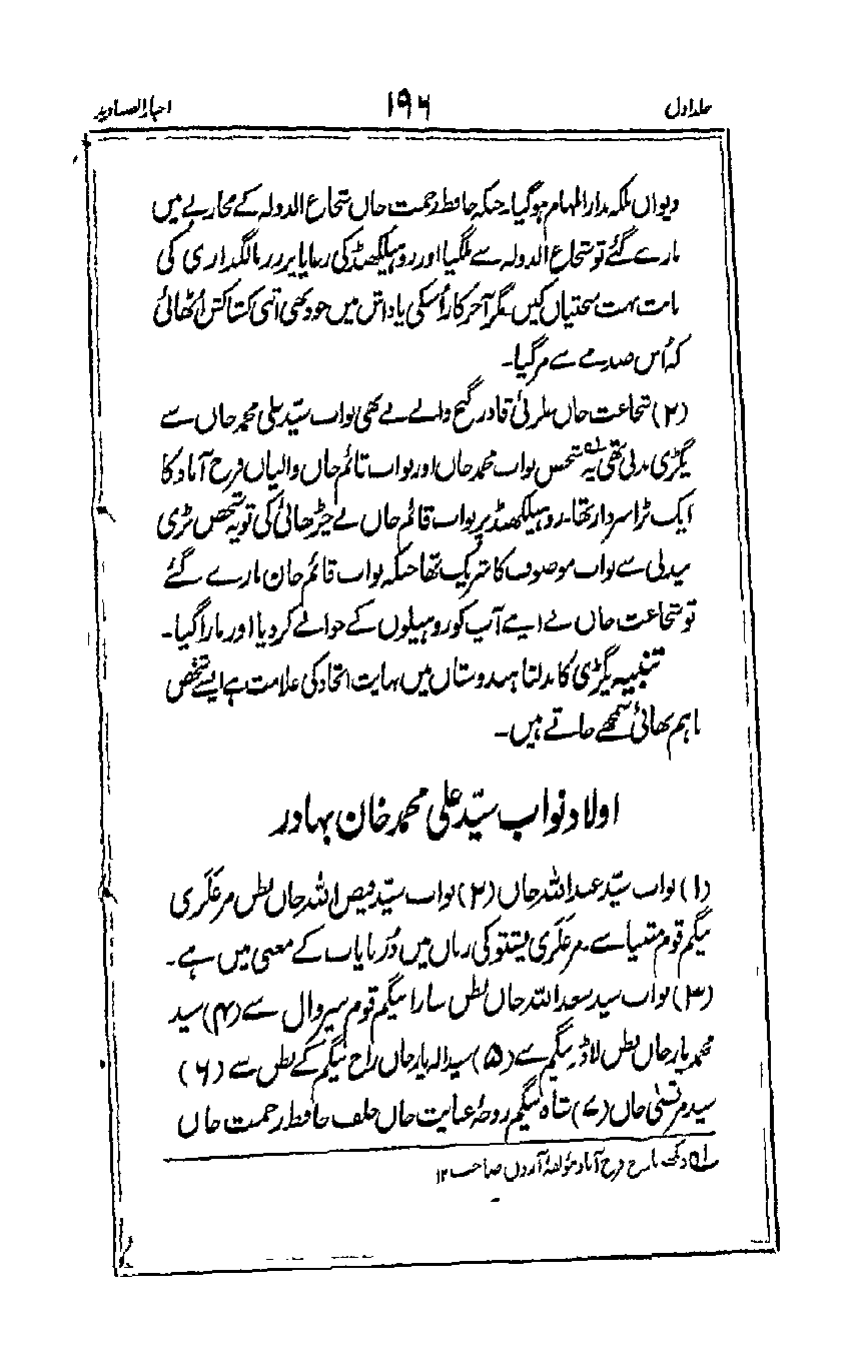 جلد اول ۱۹۶ اخبار الصنادید
دیوان بلکہ مدار المہام ہوگیا۔ جبکہ حافظ رحمت خاں شجاع الدولہ کے محاربے میں
مارے گئے تو شجاع الدولہ سے ملگیا اور روہیلکھنڈ کی رعایا پر زر مالگذاری کی
بابت بہت سختیاں کیں مگر آخرکار اُسکی پاداش میں خود بھی اتنی کشاکش اُٹھائی
کہ اُس صدمے سے مرگیا۔
(۲) شجاعت خاں غلزئی قادر گنج والے نے بھی نواب سیّد علی محمد خاں سے
پگڑی بدلی تھی یہ شخص نواب محمد خاں اور نواب قائم خاں والیان فرخ آباد کا
ایک بڑا سردار تھا۔ روہیلکھنڈ پر نواب قائم خاں نے چڑھائی کی تو یہ شخص بڑی
بیدلی سے نواب موصوف کا شریک تھا جبکہ نواب قائم خان مارے گئے
تو شجاعت خاں نے اپنے آپ کو روہیلوں کے حوالے کردیا اور مارا گیا۔
تنبیہ پگڑی کا بدلنا ہندوستاں میں نہایت اتحاد کی علامت ہے ایسے شخص
باہم بھائی سمجھے جاتے ہیں۔
اولاد نواب سیّد علی محمد خان بہادر
(۱) نواب سیّد عبداللہ خاں (۲) نواب سیّد فیض اللہ خاں بطن مرغلری
بیگم قوم سے۔ مرغلری پشتو کی زباں میں دُرنایاب کے معنی میں ہے۔
(۳) نواب سید سعد اللہ خاں بطن سارا بیگم قوم سے (۴) سید
محمد یار خاں بطن لاڈو بیگم سے (۵) سید الہ یار خاں راج بیگم کے بطن سے (۶)
سید مرتضیٰ خاں (۷) شاہ بیگم زوجۂ عنایت خاں خلف حافظ رحمت خاں
لہ دیکھو تاریخ فرخ آباد مؤلفۂ صاحب ۱۲